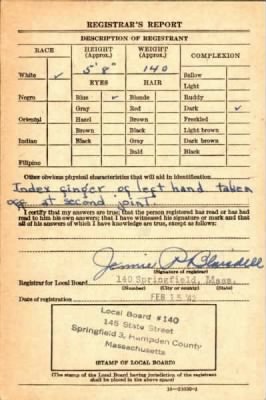 REGISTRAR'S REPORT
DESCRIPTION OF REGISTRANT
RACE HEIGHT (Approx.) WEIGHT (Approx.) COMPLEXION
White ✓ 5' 8" 140 Sallow
EYES HAIR Light
Negro Blue ✓ Blonde Ruddy
Gray Red Dark ✓
Oriental Hazel Brown Freckled
Brown Black Light brown
Indian Black Gray Dark brown
Bald Black
Filipino
Other obvious physical characteristics that will aid in identification
Index finger of left hand taken
off at second joint.
I certify that my answers are true; that the person registered has read or has had
read to him his own answers; that I have witnessed his signature or mark and that
all of his answers of which I have knowledge are true, except as follows:
(Signature of registrar)
Registrar for Local Board 140 Springfield, Mass.
(Number) (City or county) (State)
Date of registration FEB 15 '42
Local Board #140
145 State Street
Springfield 3, Hampden County
Massachusetts
(STAMP OF LOCAL BOARD)
(The stamp of the Local Board having jurisdiction of the registrant
shall be placed in the above space)